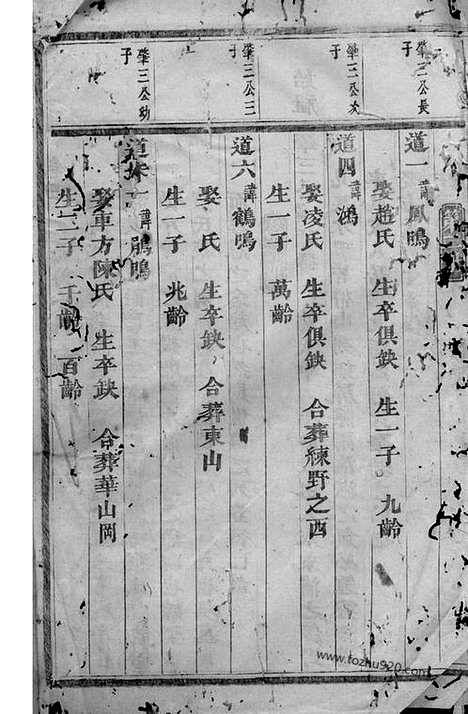 肇三公長
子
道一 諱鳳鳴
娶趙氏 生卒俱缺 生一子 九齡
肇三公次
子
道四 諱鴻
娶凌氏 生卒俱缺 合葬練野之西
生一子 萬齡
肇三公三
子
道六 諱鶴鳴
娶 氏 生卒缺 合葬東山
生一子 兆齡
肇三公幼
子
道 一 諱鵰鳴
娶車方陳氏 生卒缺 合葬華山岡
生二子 千齡 百齡
www.tozhu920.com